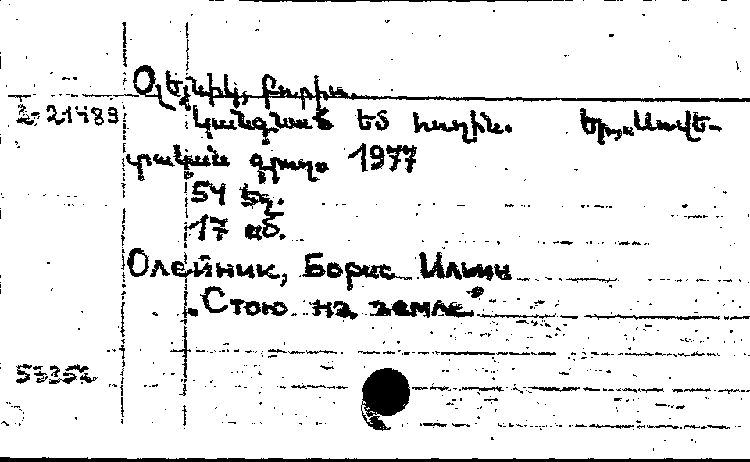 Օլեյնիկ, Բորիս.
2-21489 Կանգնած եմ հողին. Եր., Սովե-
տական գրող. 1977
54 էջ.
17 սմ.
Олейник, Борис Ильич
"Стою на земле."
53352